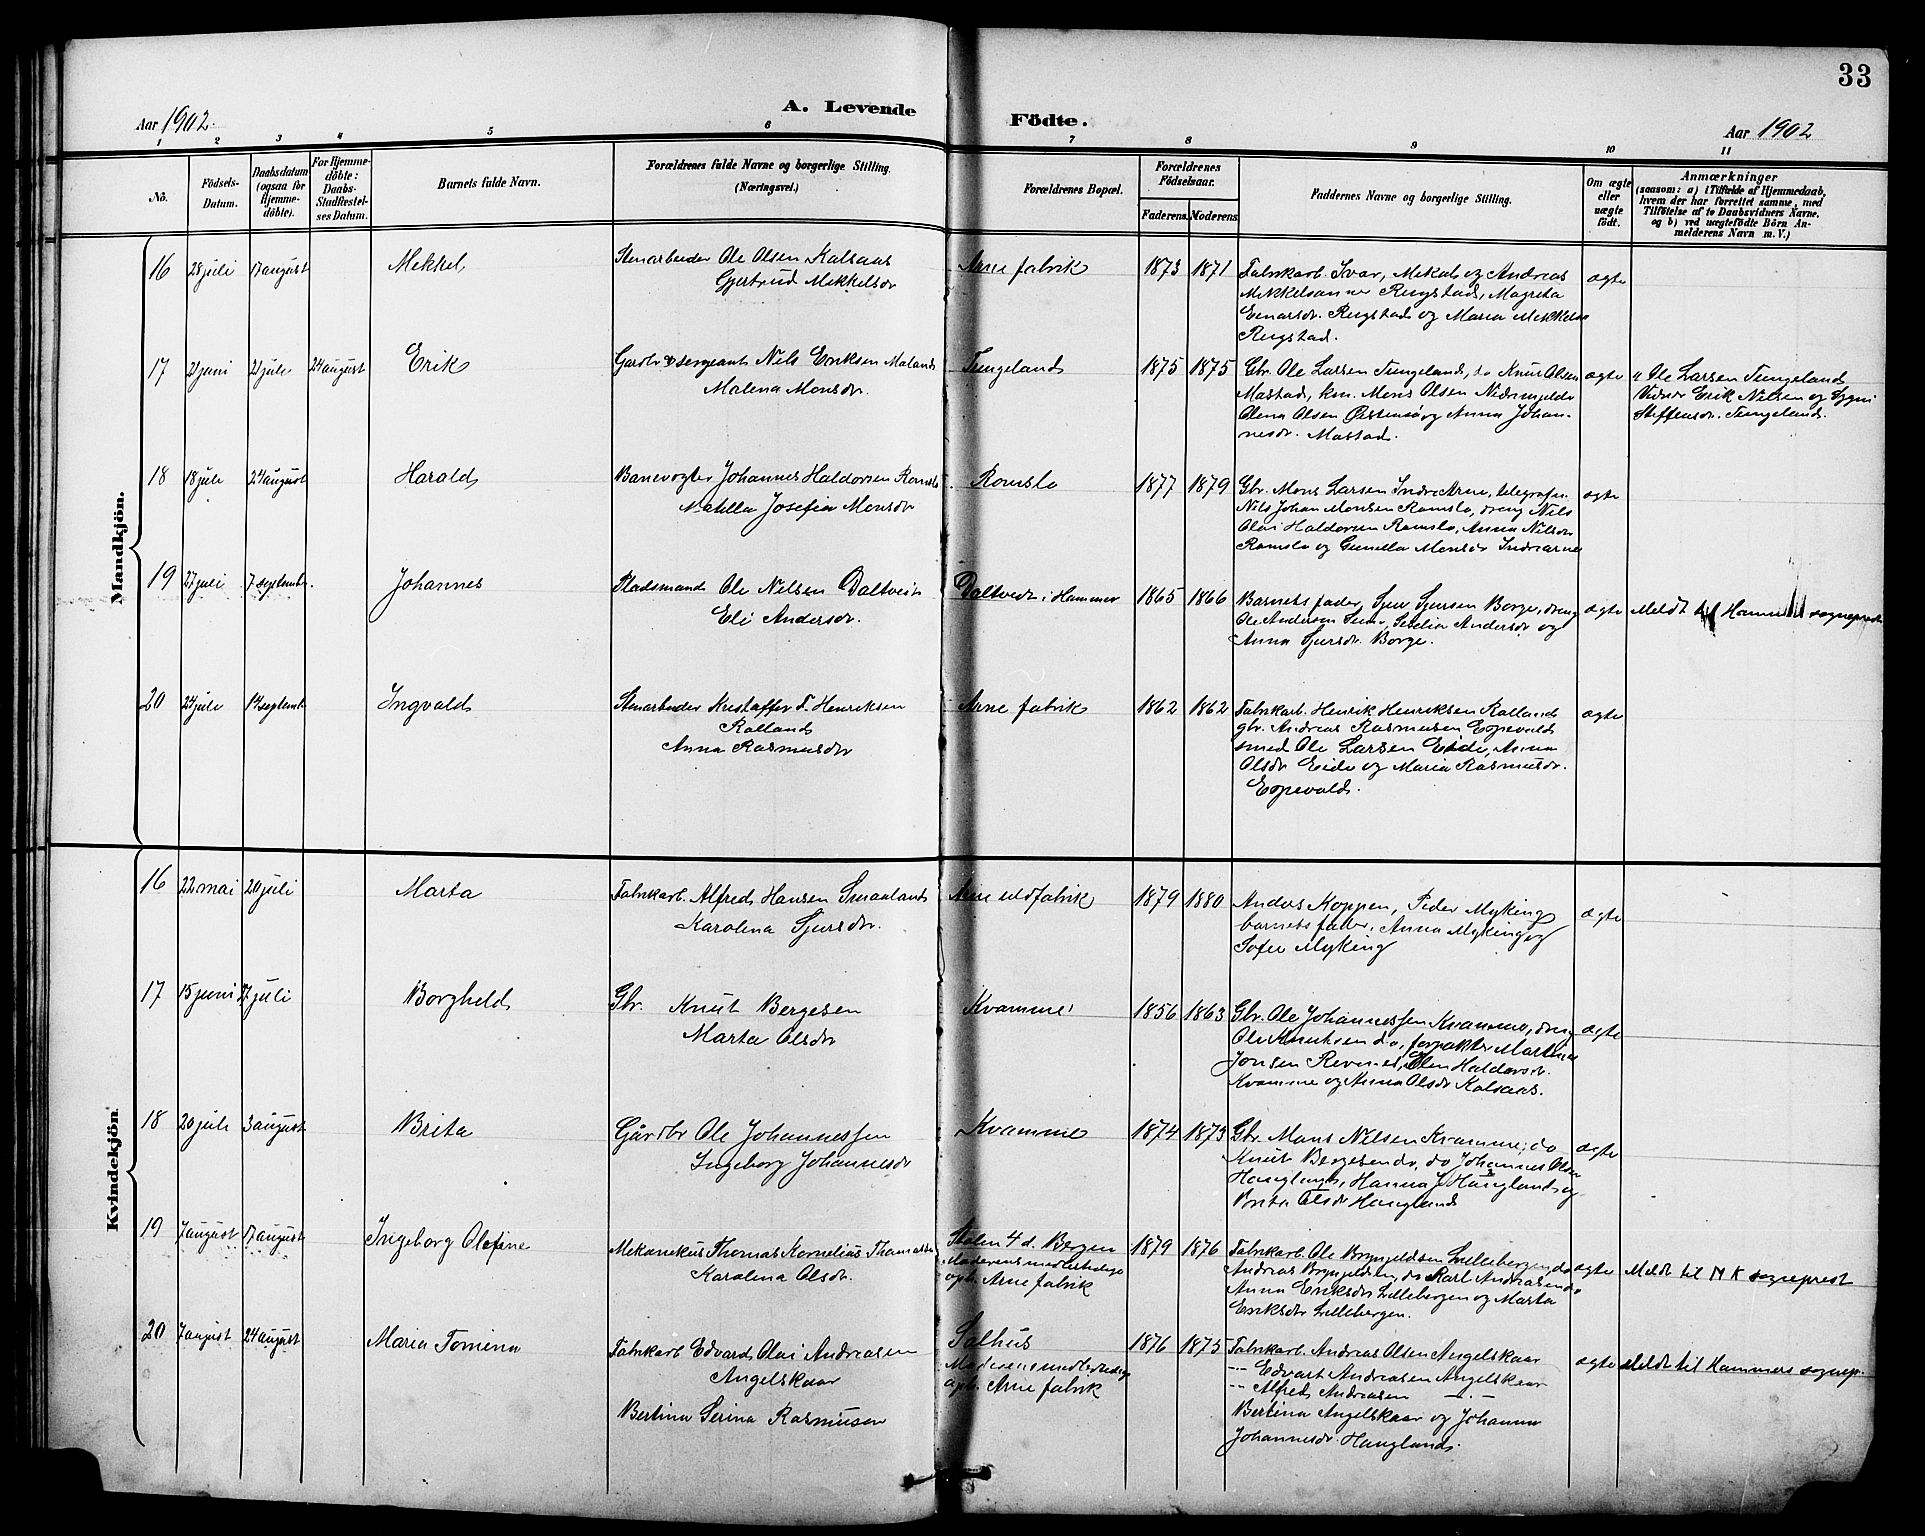 33
A. Levende Födte.
Aar 1902.
Aar 1902
1 2 3 4 5 6 7 8 9 10 11
No.
Födsels-Datum.
Daabsdatum (ogsaa for Hjemme-döbte).
For Hjemme-döbte: Daabs-Stadfæstel-ses Datum.
Barnets fulde Navn.
Forældrenes fulde Navne og borgerlige Stilling. (Næringsvei.)
Forældrenes Bopæl.
Forældrenes Födselsaar.
Faderens.
Moderens.
Faddernes Navne og borgerlige Stilling.
Om ægte eller uægte födt.
Anmærkninger
(saasom: a) i Tilfælde af Hjemmedaab,
hvem der har forrettet samme, med
Tilföielse af to Daabsvidners Navne,
og b) ved uægtefödte Börn An-
melderens Navn m. V.)
Mandkjön.
16 28 juli 17 august Mekkel
Stenarbeider Ole Olsen Kalsaas
Gjertrud Mekkelsdr
Arne fabrik 1873 1871
Fabrikarb. Ivar, Mekal og Andreas
Mekkelsønner Rugstad, Magrita
Einarsdr. Rugstad og Maria Mekkelsdr
Rugstad.
ægte
17 21 juli 24 august Erik
Gardbr & sergeant Nils Eriksen Maland
Malena Monsdr.
Tungeland 1875 1875
Gbr. Ole Larsen Tungeland, do Knut Olsen
Mastad, kon. Mons Olsen
Olena Olsen og Anna Johan-
nesdr. Mastad.
ægte
Ole Larsen Tungeland
Vidner Erik Nilsen og
Steffensdr. Tungeland.
18 18 juli 24 august Harald
Banevogter Johannes Haldorsen Romslo
Matilla Josefia Monsdr
Romslo 1877 1879
Gbr. Mons Larsen Indre Arne, telegrafis
Nils Johan Monsen Romslo, dreng Nils
Olai Haldorsen Romslo, Anna Nilsdr
Romslo og Gunilla Monsdr Indrearne
ægte
19 27 juli 7 septembr. Johannes
Pladsmand Ole Nilsen Daltveit
Eli Andersdr.
Daltvedt i Hammer 1865 1866
Barnets fader, Sjur Sjursen Borge, dreng
Ole Andersen, Seselia Andersdr og
Anna Sjursdr. Borge.
ægte
Meldt til Hammer sogneprest
20 24 juli 14 septembr Ingvald
Stenarbeider Kristoffer T. Henriksen
Rolland
Anna Rasmusdr
Arne fabrik 1862 1862
Fabrikarb. Henrik Henriksen Rolland
gbr. Andreas Rasmusen Espevold
smed Ole Larsen Eide, Anna
Olsdr Eide og Maria Rasmusdr.
Espevold.
ægte
Kvindekjön.
16 22 mai 20 juli Marta
Fabrikarb. Alfred Hansen Smaaland
Karolina Sjursdr.
Arne uldfabrik 1879 1880
Anders Koppen, Peder Myking
barnets fader, Anna Myking og
Sofie Myking
ægte
17 15 juni juli Borghild
Gbr. Knut Bergesen
Marta Olsdr
Kvamme 1856 1863
Gbr. Ole Johannessen Kvamme, dreng
Ole Knutsen do, forpakter Martinus
Jonsen Revnes, Olen Haldorsdr.
Kvamme og Anna Olsdr Kalsaas.
ægte
18 20 juli 3 august Brita
Gårdbr Ole Johannessen
Ingeborg Johannesdr
Kvamme 1874 1873
Gbr. Mons Nilsen Kvamme, do
Knut Bergesen do, do Johannes Olsen
Haugland, Hanna J. Haugland og
Brita Olsdr Haugland
ægte
19 7 august 17 august Ingeborg Olefine
Mekanikus Thomas Kornelius Thomassen
Karolina Olsdr.
Stølen 4 d. Bergen
Moderens midlertidige
oph. Arne fabrik
1879 1876
Fabrikarb. Ole Brynjeldsen Lillebergen, do
Andreas Brynjeldsen, do Karl Andreasen do
Anna Eriksdr Lillebergen og Marta
Eriksdr Lillebergen.
ægte
Meldt til N K sogneprest
20 7 august 24 august Maria Tomina
Fabrikarb Edvard Olai Andreasen
Angelskaar
Bertina Serina Rasmusen
Salhus
Moderens midlertidige
oph. Arne fabrik
1876 1875
Fabrikarb. Andreas Olsen Angelskaar
-"- Edvart Andreasen Angelskaar
-"- Alfred Andreasen -"-
Bertina Angelskaar og Johanna
Johannesdr. Haugland.
ægte
Meldt til Hammers sognep.